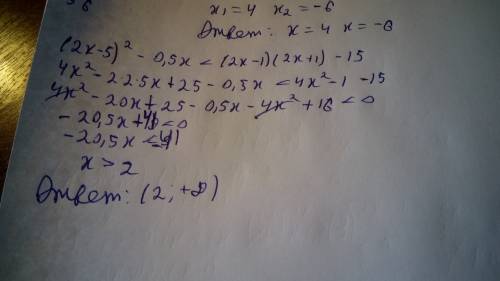 56
x₁ = 4 x₂ = -6
Ответ: x = 4 x = -6
(2x-5)² - 0,5x < (2x-1)(2x+1) - 15
4x² - 2·2·5x + 25 - 0,5x < 4x² - 1 - 15
4x² - 20x + 25 - 0,5x - 4x² + 16 < 0
- 20,5x + 41 < 0
- 20,5x < -41
x > 2
Ответ: (2; +∞)